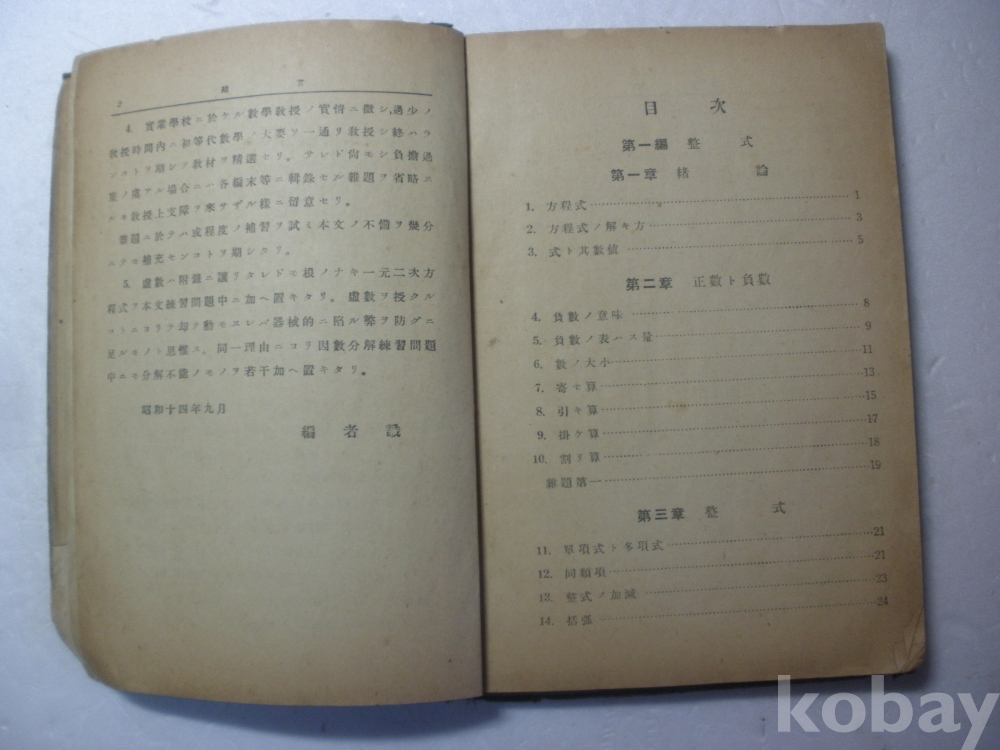 2
緒言
4. 實業學校ニ於ケル數學敎授ノ實情ニ徵シ、過少ノ
敎授時間內ニ初等代數學ノ大要ヲ一通リ敎授シ終ハラ
ンコトヲ期シテ敎材ヲ精選セリ。サレド尙モシ負擔過
重ノ虞アル場合ニハ各編末等ニ輯錄セル雜題ヲ省略ニ
ルモ敎授上支障ヲ來サザル樣ニ留意セリ。
雜題ニ於テハ或程度ノ補習ヲ試ミ本文ノ不備ヲ幾分
ニテモ補充センコトヲ期シタリ。
5. 虛數ハ附錄ニ讓リタレドモ根ノナキ一元二次方
程式ヲ本文練習問題中ニ加ヘ置キタリ。虛數ヲ授クル
コトニヨリテ却テ動モスレバ器械的ニ陷ル弊ヲ防グニ
足ルモノト思惟ス。同一理由ニヨリ因數分解練習問題
中ニモ分解不能ノモノヲ若干加ヘ置キタリ。
昭和十四年九月
編者識
目次
第一編 整式
第一章 緖論
1. 方程式 1
2. 方程式ノ解キ方 3
3. 式ト其數値 5
第二章 正數ト負數
4. 負數ノ意味 8
5. 負數ノ表ハス量 9
6. 數ノ大小 11
7. 寄セ算 13
8. 引キ算 15
9. 掛ケ算 17
10. 割リ算 18
雜題第一 19
第三章 整式
11. 單項式ト多項式 21
12. 同類項 21
13. 整式ノ加減 23
14. 括弧 24
kobay